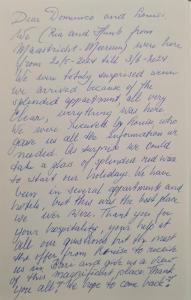 Dear Domenico and
We (Ria and from
Maastricht - ) were here
from 20/5-2024 till 3/6-2024
We were totally surprised when
we arrived because of the
splendid appartment, all very
clear, everything was here
We were by who
gave us all the information we
needed. As surprise we could
take a glass of splendid red wine
to start our holidays. We have
been in several appartments and
hotels, but this was the best place
we ever were. Thank you for
your hospitality, your help at
all our questions but the most
the offer from to receive
us in and give us a view
of this magnificent place. Thank
you all! We hope to come back!